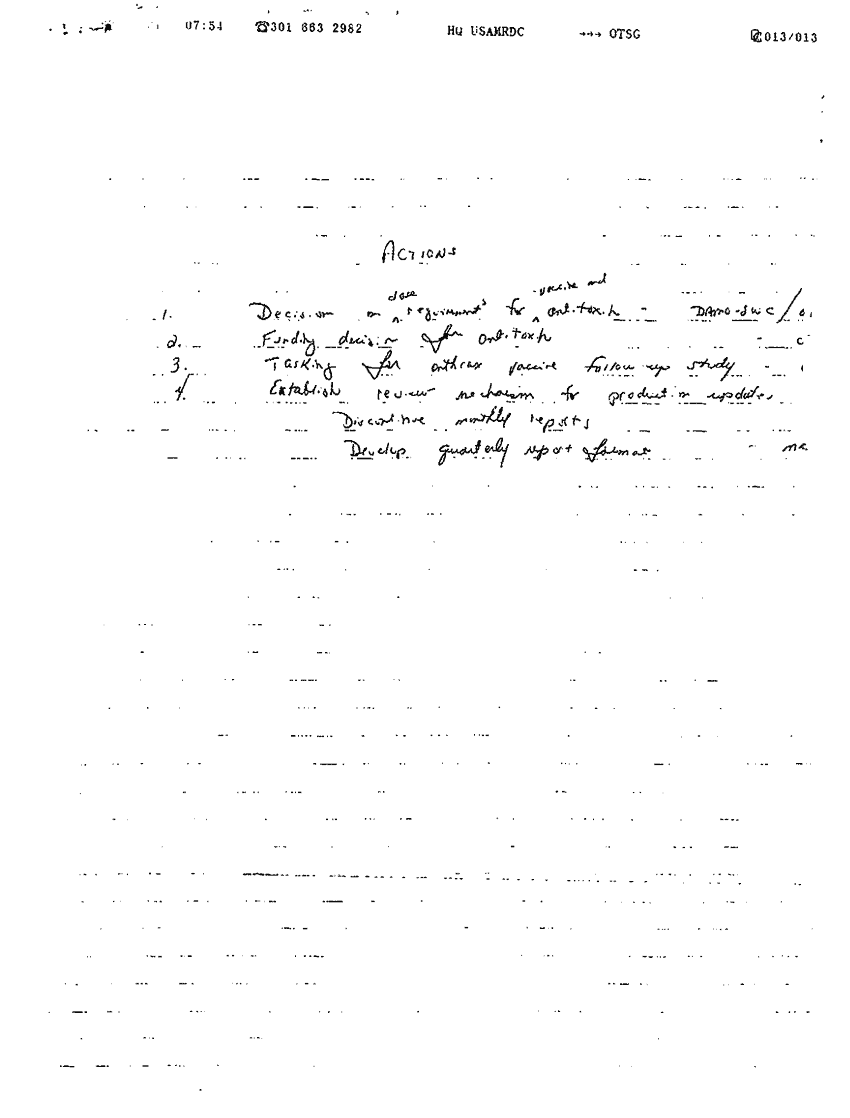 07:54 ☎301 663 2982 HQ USAMRDC →→→ OTSG 013/013
ACTIONS
dose vaccine and
1. Decision on ^ requirements for ^ antitoxin - DAMO-SWC/
2. Funding decision for antitoxin -
3. Tasking for anthrax vaccine follow up study -
4. Establish review mechanism for production updates
Discontinue monthly reports
Develop quarterly report format -